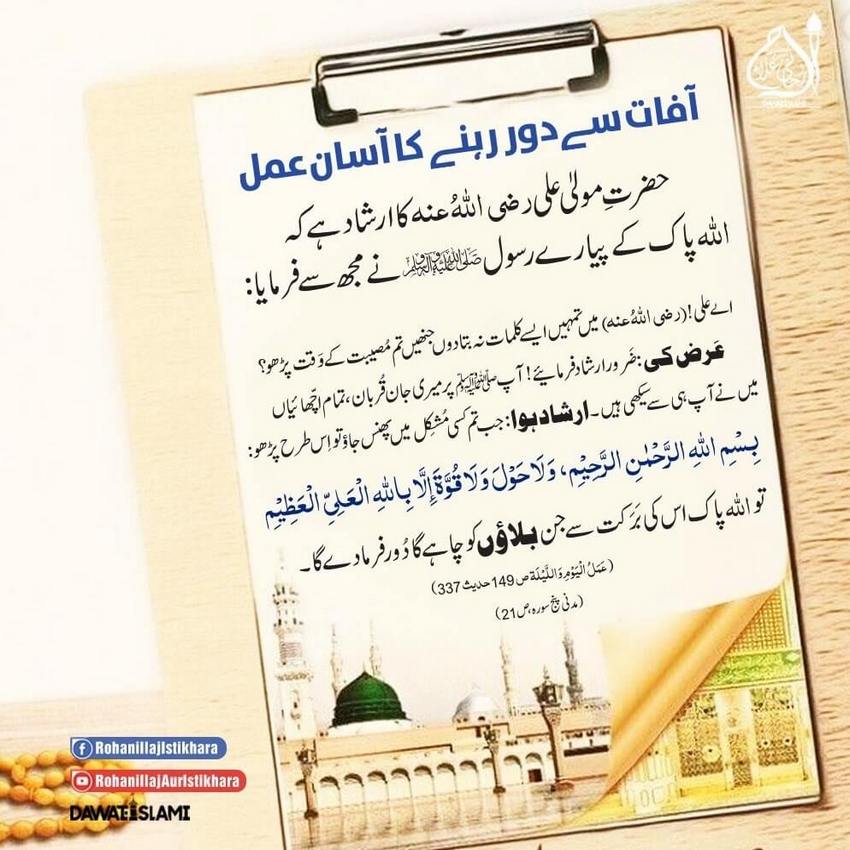 آفات سے دور رہنے کا آسان عمل
حضرتِ مولیٰ علی رضی اللہُ عنہ کا ارشاد ہے کہ
اللہ پاک کے پیارے رسول ﷺ نے مجھ سے فرمایا:
اے علی! (رضی اللہُ عنہ) میں تمہیں ایسے کلمات نہ بتادوں جنھیں تم مُصیبت کے وَقت پڑھو؟
عَرض کی: ضَرور ارشاد فرمائیے! آپ ﷺ پر میری جان قُربان، تمام اچّھائیاں
میں نے آپ ہی سے سیکھی ہیں۔ ارشاد ہوا: جب تم کسی مُشکِل میں پھنس جاؤ تو اِس طرح پڑھو:
بِسْمِ اللهِ الرَّحْمٰنِ الرَّحِيْمِ، وَلَا حَوْلَ وَلَا قُوَّةَ اِلَّا بِاللهِ الْعَلِيِّ الْعَظِيْمِ
تو اللہ پاک اس کی بَرَکت سے جن بلاؤں کو چاہے گا دُور فرما دے گا۔
(عَمَلُ الْيَوْمِ وَاللَّيْلَة ص 149 حدیث 337)
(مدنی پنج سورہ، ص 21)
RohanillajIstikhara
RohanillajAurIstikhara
DAWATEISLAMI